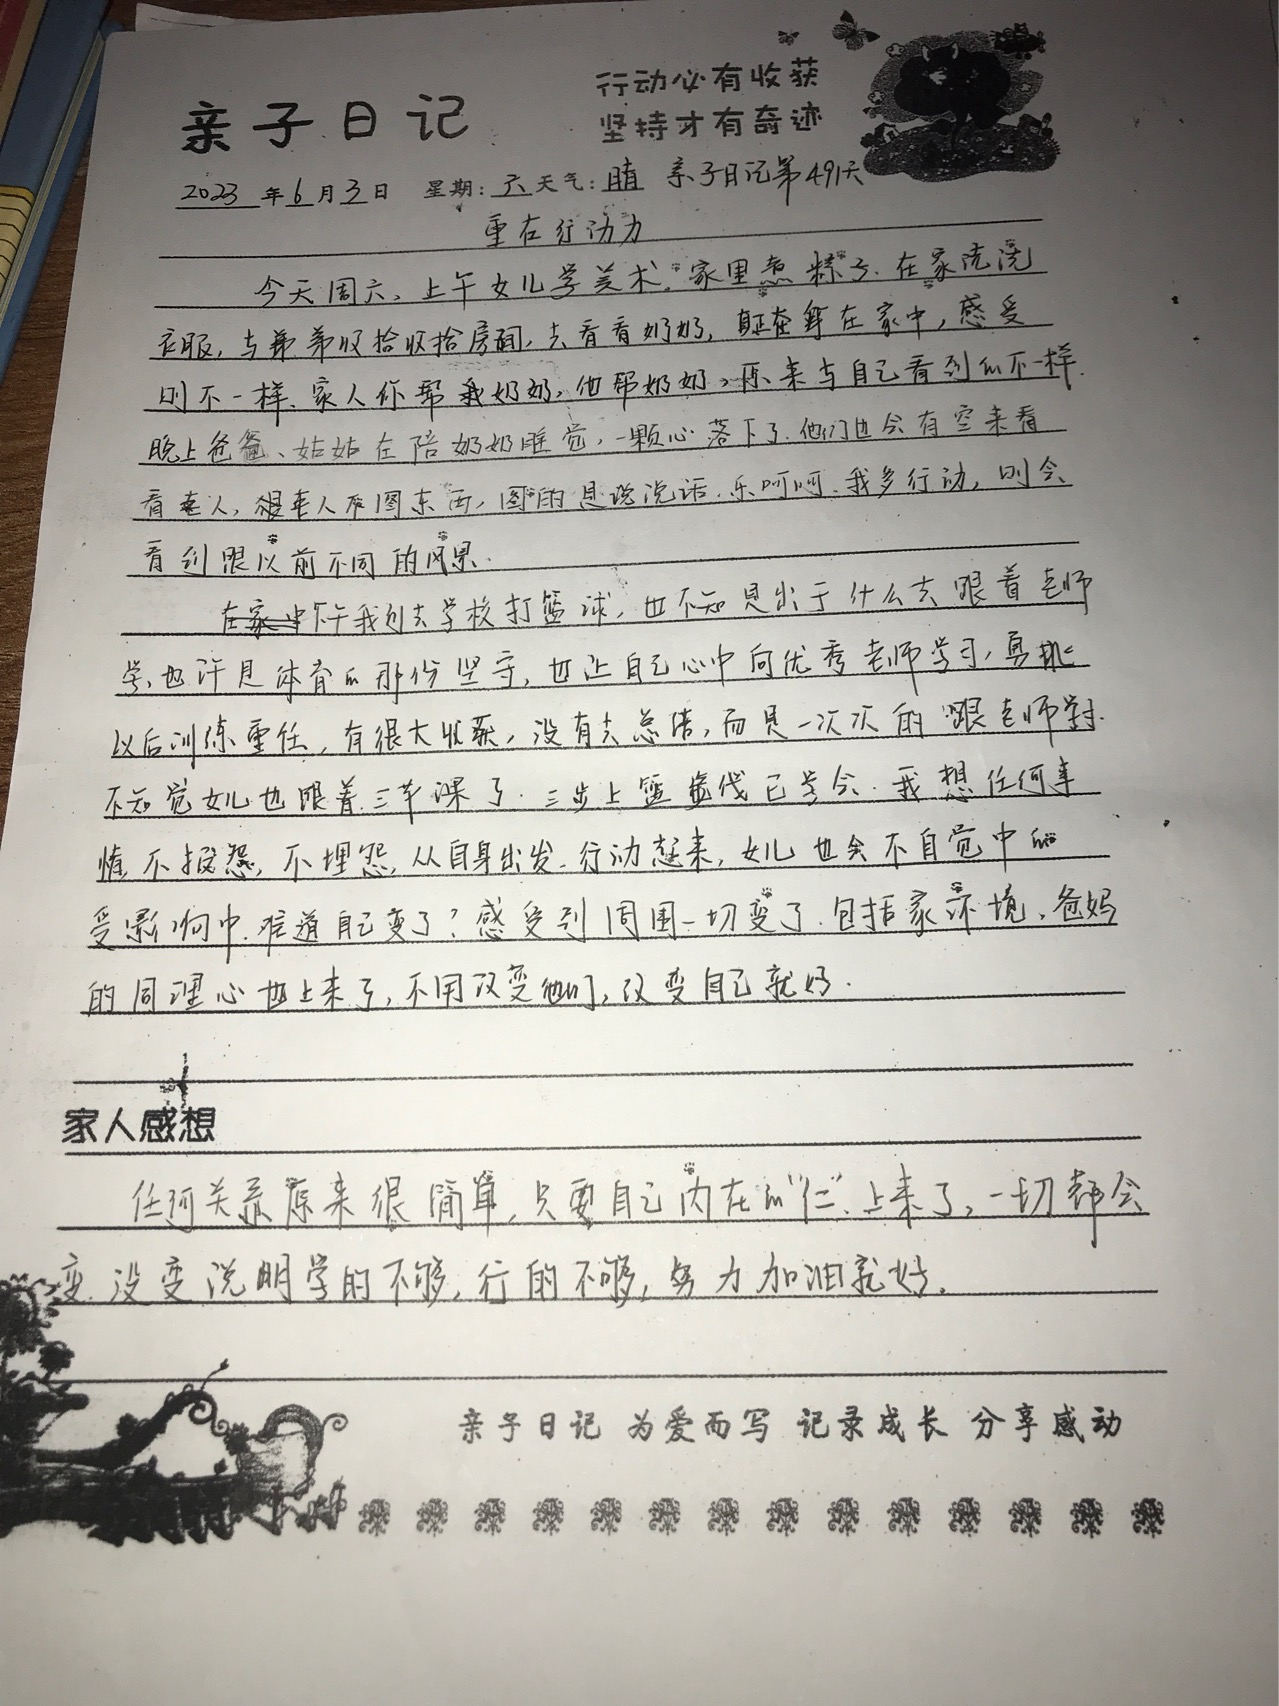 亲子日记
行动必有收获
坚持才有奇迹
2023年6月3日 星期:六 天气:晴 亲子日记第491天
重在行动力
今天周六、上午女儿学美术。家里煮粽子.在家洗洗
衣服,与弟弟收拾收拾房间,去看看奶奶,在家中,感受
则不一样、家人你帮我奶奶,他帮奶奶,原来与自己看到的不一样.
晚上爸爸、姑姑在陪奶奶睡觉,一颗心落下了.他们也会有空来看
看老人,老人不图东西,图的是说说话.乐呵呵.我多行动,则会
看到跟以前不同的风景.
下午我则去学校打篮球,也不知是出于什么去跟着老师
学,也许是体育的那份坚守,也让自己心中向优秀老师学习,勇挑
以后训练重任,有很大收获,没有去总结,而是一次次的跟老师学
不知觉女儿也跟着三节课了.三步上篮已学会.我想任何事
情不报怨,不埋怨,从自身出发.行动起来,女儿也会不自觉中的
受影响中.难道自己变了?感受到周围一切变了.包括家环境、爸妈
的同理心也上来了,不用改变他们,改变自己就好.
家人感想
任何关系原来很简单,只要自己内在的“仁”上来了,一切都会
变.没变说明学的不够,行的不够,努力加油就好.
亲子日记 为爱而写 记录成长 分享感动